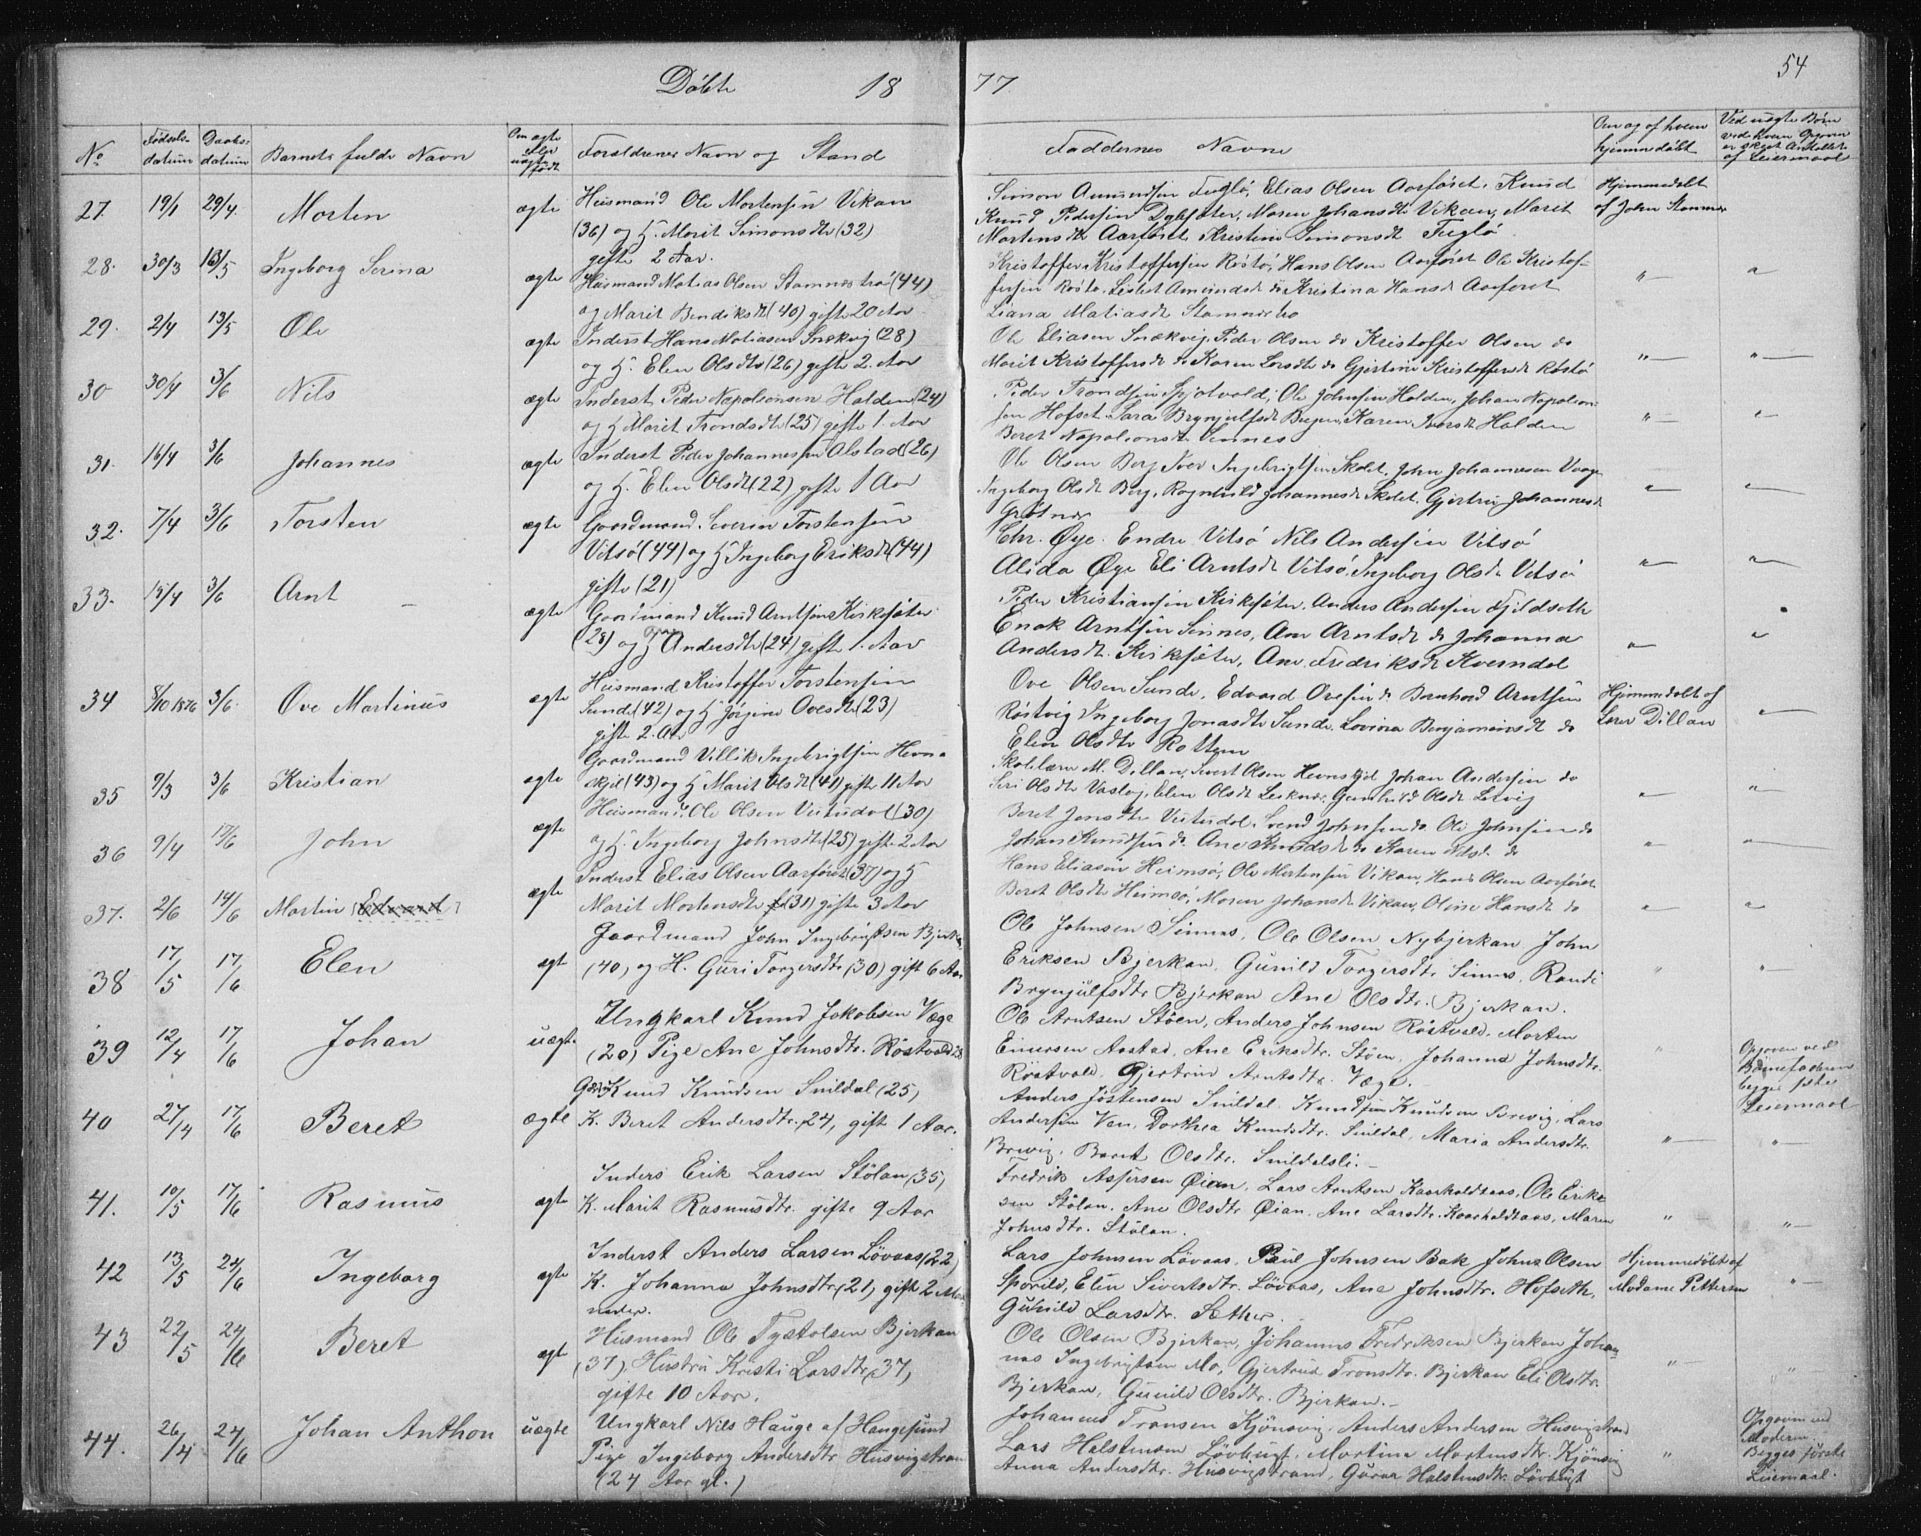 Døbte 18
77
54
No
Fødsels-
datum
Daabs-
datum
Barnets fulde Navn
Om ægte
eller
uægte
født
Forældrenes Navn og Stand
Faddernes Navne
Om og af hvem
hjemmedøbt
Ved uægte Børn
ved hvem Opgaven
er skeet Antallet
af Leiermaal
27. 19/1 29/4 Morten ægte
Husmand Ole Mortensen Vikan
(36) og H. Marit Simonsdtr (32)
gifte 2 Aar.
Simon Amundsen Fuglø, Elias Olsen Aarføret. Knud
Knud Pedersen, Maren Johansdtr Vikan, Marit
Mortensdtr Aarføret Kristine Simonsdt Fuglø
Hjemmedøbt
af John Stamnes
28. 30/3 13/5 Ingeborg Serina ægte
Husmand Matias Olsen Stamnestrø (44)
og Marit Bendiksdt (40) gifte 20 Aar
Kristoffer Kristoffersen Røstø, Hans Olsen Aarføret Ole Kristof-
fersen Røstø. Lisbet Amundsdt do Kristina Hansdt Aarføret
Liana Matiasdt Stamnesbo
29. 2/4 13/5 Ole ægte
Inderst Hans Matiasen Snekvig (28)
og H. Elen Olsdtr (26) gifte 2 Aar
Ole Eliasen Snækvig Peder Olsen do Kristoffer Olsen do
Marit Kristoffersdt do Karen Larsdtr do Gjertine Kristoffersdt Røstø
30 30/4 3/6 Nils ægte
Inderst Peder Napoleonsen Halden (24)
og H Marit Trondsdtr (25) gifte 1 Aar
Peder Trondsen Gjøtvold, Ole Johnsen Halden, Johan Napoleon-
sen Hofset. Sara Brynjulfsdt Bugen, Karen Iversdt Halden
Beret Napoleonsdt Sinnes
31. 16/4 3/6 Johannes ægte
Inderst Peder Johannessen Alstad (26)
og H. Elen Olsdt (22) gifte 1 Aar
Ole Olsen Berg Iver Ingebrigtsen Skolet, John Johannesen Vaage
Ingeborg Olsdt Berg, Ragnhild Johannesdt Skolet Gjertru Johannesdt
Grøtnes
32. 7/4 3/6 Torsten ægte
Gaardmand Severin Torstensen
Vitsø (44) og H Ingeborg Eriksdt (44)
gifte (21)
Chr. Øye. Endre Vitsø Nils Andersen Vitsø
Alida Øye Eli Arntsdt Vitsø, Ingeborg Olsdt Vitsø
33. 15/4 3/6 Arnt ægte
Gaardmand Knud Arntsen Kirksæter
(28) og H Andersdtr (24) gifte 1 Aar
Peder Kristiansen Kirksæter, Anders Andersen Fjeldseth
Enok Arntsen Sinnes, Ane Arntsdt do Johanna
Andersdt. Kirksæter, Ane Fredriksdt Kverndal
34 8/10 1876 3/6 Ove Martinus ægte
Husmand Kristoffer Torstensen
Sunde (42) og H Jørgine Ovesdtr (23)
gifte 2 Aar
Ove Olsen Sunde, Edvard Ovesen do Bernhard Arntsen
Røstvig Ingeborg Jonasdtr Sunde, Lovisa Benjaminsdt do
Elen Olsdtr Rottem
Hjemmedøbt af
Lærer Dillan
35 9/3 3/6 Kristian ægte
Gaardmand Villik Ingebrigtsen Hevn-
skjel (43) og H Marit Olsdt (41) gifte 11 Aar
Skolelærer M. Dillan, Sivert Olsen Hevnskjel Johan Andersen do
Siri Olsdtr Vaslag, Elen Olsdt Leknes Gunhild Olsdt Lervig
36 9/4 17/6 John ægte
Husmand Ole Olsen Vutudal (30)
og H. Ingeborg Johnsdt (25) gifte 2 Aar
Beret Jonsdtr Vutudal. Svend Johnsen do Ole Johnsen do
Johan Knudsen do Ane Knudsdt do Karen Nilsd. do
37. 2/6 14/6 Martin Edvard ægte
Inderst Elias Olsen Aarføret (37) og H
Marit Mortensdtr (31) gifte 3 Aar
Hans Eliasen Heimsø, Ole Mortensen Vikan, Hans Olsen Aarføret
Beret Olsdt Heimsø, Maren Johansdt Vikan, Oline Hansdt do
38 17/5 17/6 Elen ægt
Gaardmand John Ingebrigtsen Bjerkan
(40) og H. Guri Torgersdtr (30) gift 6 Aar
Ole Johnsen Sinnes, Ole Olsen Nybjerkan John
Eriksen Bjerkan, Gunild Torgersdtr Sinnes, Randi
Brynjulfsdtr Bjerkan Ane Olsdtr. Bjerkan.
39 12/4 17/6 Johan uægte
Ungkarl Knud Jakobsen Væge
(20) Pige Ane Johnsdtr. Røstvold 28
Ole Arntsen Støen, Anders Johnsen Røstvold. Morten
Einersen Aastad, Ane Eriksdtr. Støen, Johanna Johnsdtr.
Røstvold, Gjertrud Arntsdtr. Væge.
Opgaven ved
Barnefaderen
begges 1ste
Leiermaal
40 27/4 17/6 Beret ægte
Gaard Knud Knudsen Snildal (25)
K. Beret Andersdtr. 24, gift 1 Aar.
Anders Jostensen Snildal Knud Knudsen Brevig, Lars
Andersen Ven, Dorthea Knudsdtr. Snildal, Maria Andersdtr.
Brevig, Beret Olsdtr. Snildalsli.
41. 10/5 17/6 Rasmus ægte
Inders Erik Larsen Stølan (35)
K. Marit Rasmusdtr. gifte 9 Aar
Fredrik Assersen Øian, Lars Arntsen Kaarholdtaas, Ole Erik-
sen Stølan, Ane Olsdtr Øian, Ane Larsdtr. Kaarholdtaas, Maren
Johnsdtr. Stølan.
42 13/5 24/6 Ingeborg ægte
Inderst Anders Larsen Løvaas (22)
K. Johanna Johnsdtr. (21) gift 2 Maa-
neder.
Lars Johnsen Løvaas, Paul Johnsen Bak John Olsen
Sporild, Elen Sivertsdtr. Løvaas, Ane Johnsdtr. Hofseth,
Gunild Larsdtr. Sæther.
Hjemmedøbt af
Madame Pettersen
43 22/5 24/6 Beret ægt
Husmand Ole Tystolsen Bjerkan
(37) Hustru Kristi Larsdtr. 37,
gifte 10 Aar.
Ole Olsen Bjerkan, Johannes Fredriksen Bjerkan Johan-
nes Ingebrigtsen Mo, Gjertrud Tronsdtr. Bjerkan Eli Olsdtr.
Bjerkan, Gunild Olsdtr. Bjerkan.
44. 26/4 24/6 Johan Anthon uægte
Ungkarl Nils Hauge af Haugesund
Pige Ingeborg Andersdtr Husvigstran
(24 Aar gl.)
Johannes Transen Kjønsvig, Anders Andersen Husvigstrand
Lars Halstensen Løvbugt, Martina Mortensdtr. Kjønsvig
Anna Andersdtr. Husvigstrand, Gurou Halstensdtr. Løvbugt
Opgaven ved
Moderen
Begges første
Leiermaal.